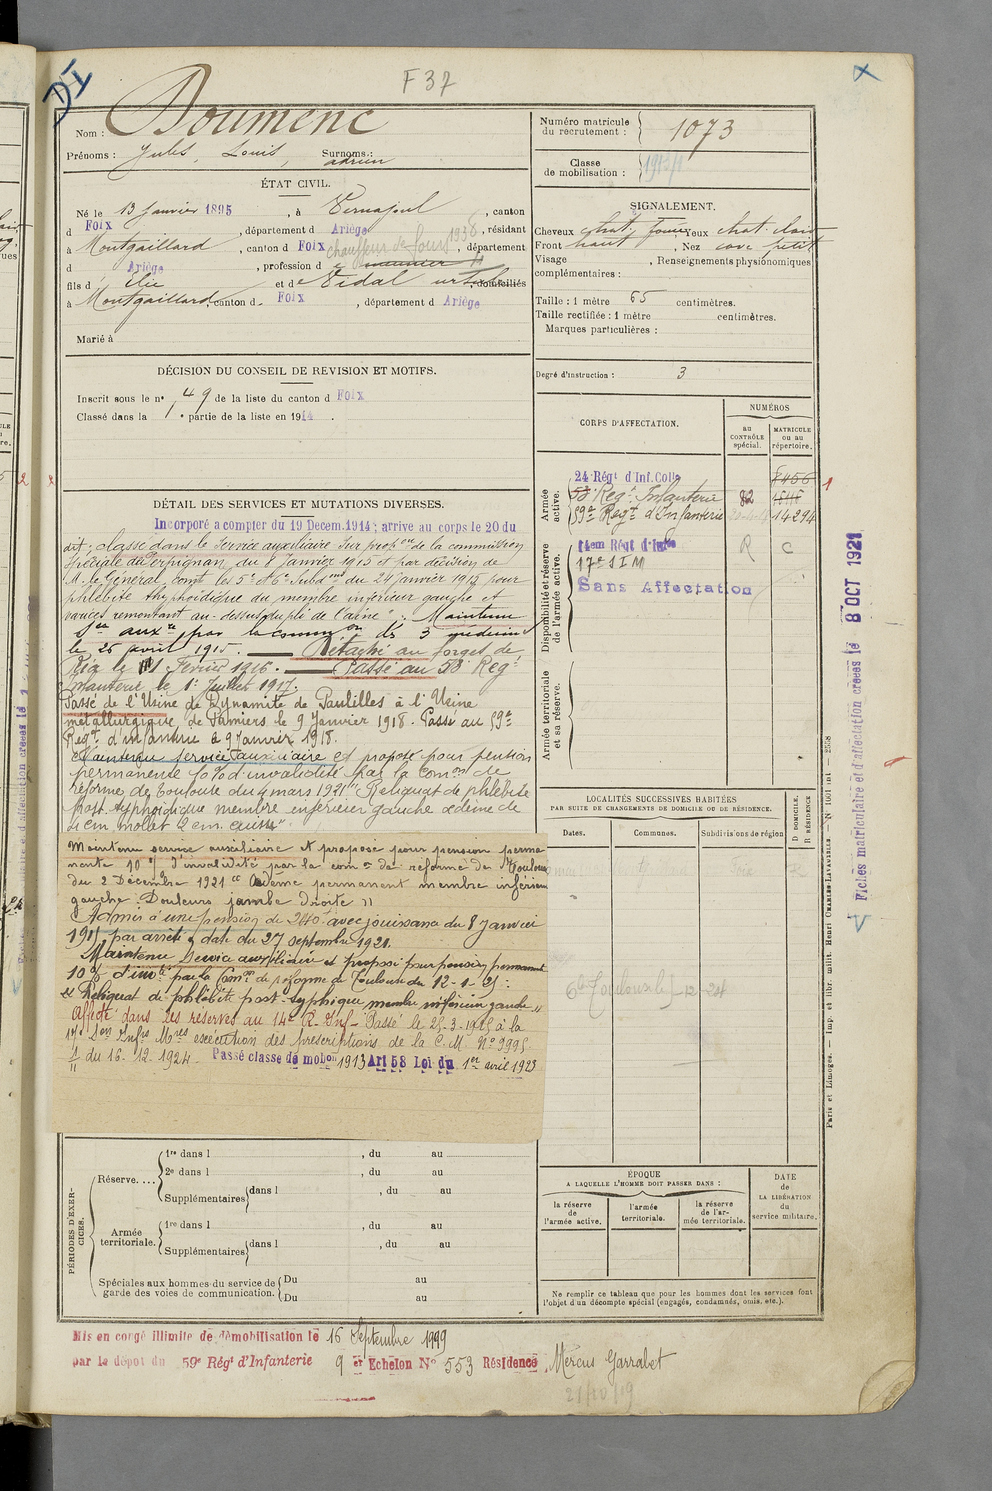 F 37
DI
Nom : Doumenc
Prénoms : Jules, Louis, Surnoms : adrien
ÉTAT CIVIL.
Né le 13 Janvier 1895, à Vernajoul, canton
d Foix, département d Ariège, résidant
à Montgaillard, canton d Foix chauffeur de four 1936, département
d Ariège, profession d meunier
fils d Elie et de Vidal domiciliés
à Montgaillard, canton d Foix, département d Ariège
Marié à
DÉCISION DU CONSEIL DE REVISION ET MOTIFS.
Inscrit sous le n° 49 de la liste du canton d Foix
Classé dans la 1 e partie de la liste en 1914.
DÉTAIL DES SERVICES ET MUTATIONS DIVERSES.
Incorporé a compter du 19 Decem. 1914; arrive au corps le 20 du
dit; classé dans le service auxiliaire sur propon de la commission
Spéciale de Perpignan, du 8 Janvier 1915 et par décision de
M. le Général, comt les 5e et 6e Subdons du 24 janvier 1915 pour
phlébite thyphoïdique du membre inférieur gauche et
varices remontant au-dessus du pli de l'aine". Maintenu
Ser auxre par la common de 3 médecins
le 25 avril 1915. — Détaché au forges de
Ria le 1 Février 1916. — Passé au 53 Regt
Infanterie le 1er Juillet 1917.
Passé de l'Usine de Dynamite de Paulilles à l'Usine
métallurgique de Pamiers le 9 Janvier 1918. Passé au 59e
Regt d'infanterie le 9 Janvier 1918.
Maintenu service auxiliaire et proposé pour pension
permanente 10% d'invalidité par la Comon de
réforme de Toulouse du 4 mars 1921 "Reliquat de phlébite
post typhoïdique membre inférieur gauche œdème de
cm mollet 2 cm. cuisse".
Maintenu service auxiliaire et proposé pour pension perma-
nente 10% d'invalidité par la comon de réforme de Toulouse
du 2 Décembre 1921 "Œdème permanent membre inférieur
gauche. Douleurs jambe droite"
Admis à une pension de 240f avec jouissance du 8 Janvier
par arrêté à date du 27 septembre 1921.
Maintenu service auxiliaire et proposé pour pension permanente
10% d'invté par la Comon de réforme de Toulouse du 12-1-25:
"Reliquat de phlébite post-typhique membre inférieur gauche"
Affecté dans les réserves au 14e R. Inf. Passé le 25-3-1925 à la
17e Son Infrs Mres exécution des prescriptions de la C.M. N° 9995
du 16-12-1924. Passé classe de mobon 1913 Art 58 Loi du 1er avril 1923
PÉRIODES D'EXER-CICES.
Réserve....
1re dans l , du au
2e dans l , du au
Supplémentaires dans l , du au
Armée territoriale.
1re dans l , du au
Supplémentaires dans l , du au
Spéciales aux hommes du service de garde des voies de communication.
Du au
Du au
Mis en congé illimité de démobilisation le 16 Septembre 1919
par le dépot du 59e Régt d'Infanterie 9 er Echelon N° 553 Résidence Mercus Garrabet
21/10/19
Numéro matricule du recrutement : 1073
Classe de mobilisation :
SIGNALEMENT.
Cheveux chat. foncé, Yeux chat. clair
Front haut, Nez cave petit
Visage , Renseignements physionomiques
complémentaires :
Taille : 1 mètre 65 centimètres.
Taille rectifiée : 1 mètre centimètres.
Marques particulières :
Degré d'instruction : 3
CORPS D'AFFECTATION.
NUMÉROS
AU CONTRÔLE spécial.
MATRICULE ou au répertoire.
Armée active.
24 Régt d'Inf. Colle 8456
53e Regt Infanterie 82
59e Regt d'Infanterie 14294
Disponibilité et réserve de l'armée active.
14em Régt d'Infie R C
17e S I M
Sans Affectation
Armée territoriale et sa réserve.
LOCALITÉS SUCCESSIVES HABITÉES
PAR SUITE DE CHANGEMENTS DE DOMICILE OU DE RÉSIDENCE.
Dates. Communes. Subdivisions de région
D DOMICILE. R RÉSIDENCE
Toulouse le 12-24
ÉPOQUE
A LAQUELLE L'HOMME DOIT PASSER DANS :
la réserve de l'armée active.
l'armée territoriale.
la réserve de l'ar-mée territoriale.
DATE de LA LIBÉRATION du service militaire.
Ne remplir ce tableau que pour les hommes dont les services font
l'objet d'un décompte spécial (engagés, condamnés, omis, etc.).
Paris et Limoges. — Imp. et libr. milit. Henri CHARLES-LAVAUZELLE.
Fiches matriculaire et d'affectation créées le 8 OCT 1921